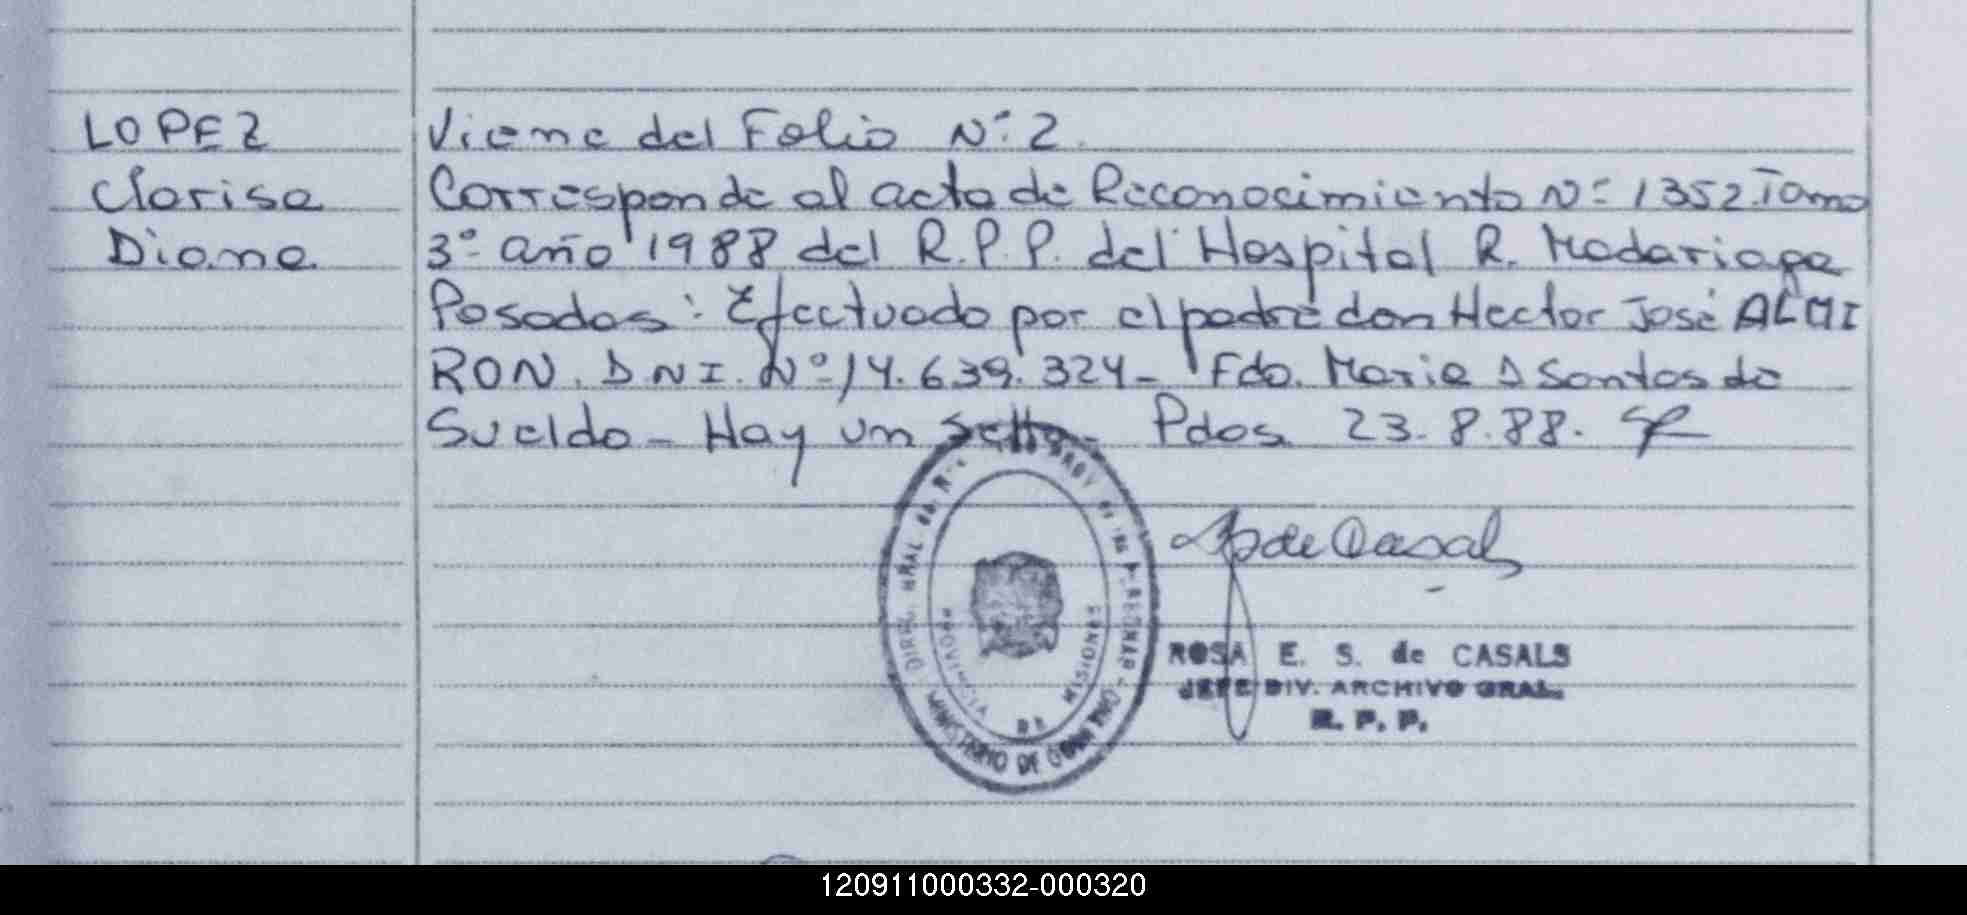 LOPEZ
Clarisa
Diana
Viene del Folio Nº 2.
Corresponde al acta de Reconocimiento Nº 1352. Tomo
3º año 1988 del R.P.P. del Hospital R. Madariaga
Posadas: Efectuado por el padre don Hector José ALMI
RON. D.N.I. Nº 14.639.324- Fdo. Maria D Santos de
Sueldo - Hay un sello - Pdas. 23.8.88.
DIREC. GRAL
MINISTERIO DE GOBIERNO
PROVINCIA DE MISIONES
de Casals
ROSA E. S. de CASALS
JEFE DIV. ARCHIVO GRAL.
R. P. P.
120911000332-000320